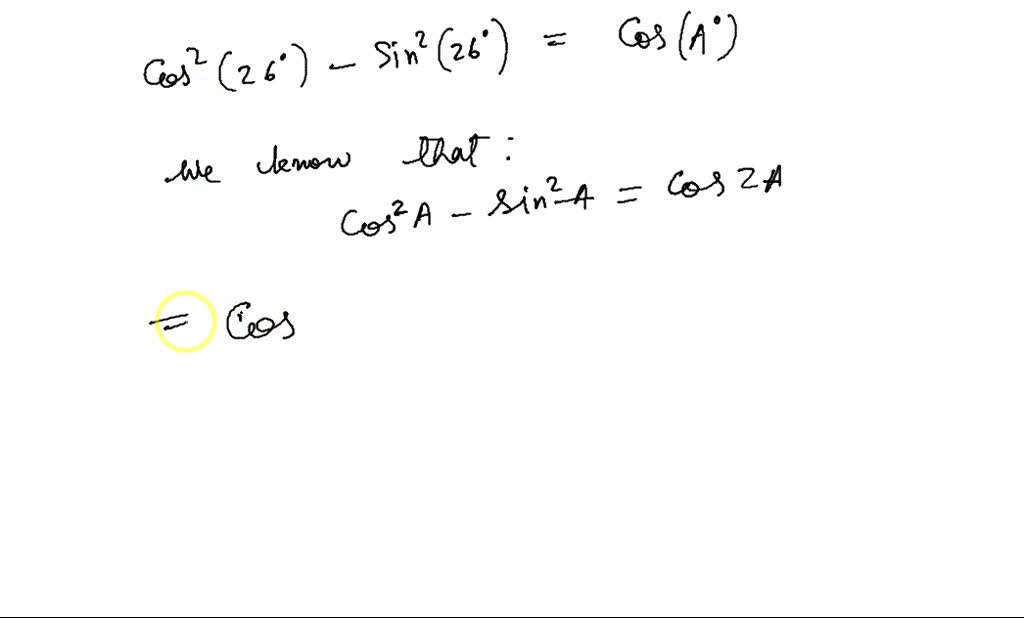 Cos²(26°) – Sin²(26°) = Cos(A°)
We know that:
Cos²A – Sin²A = Cos2A
= Cos